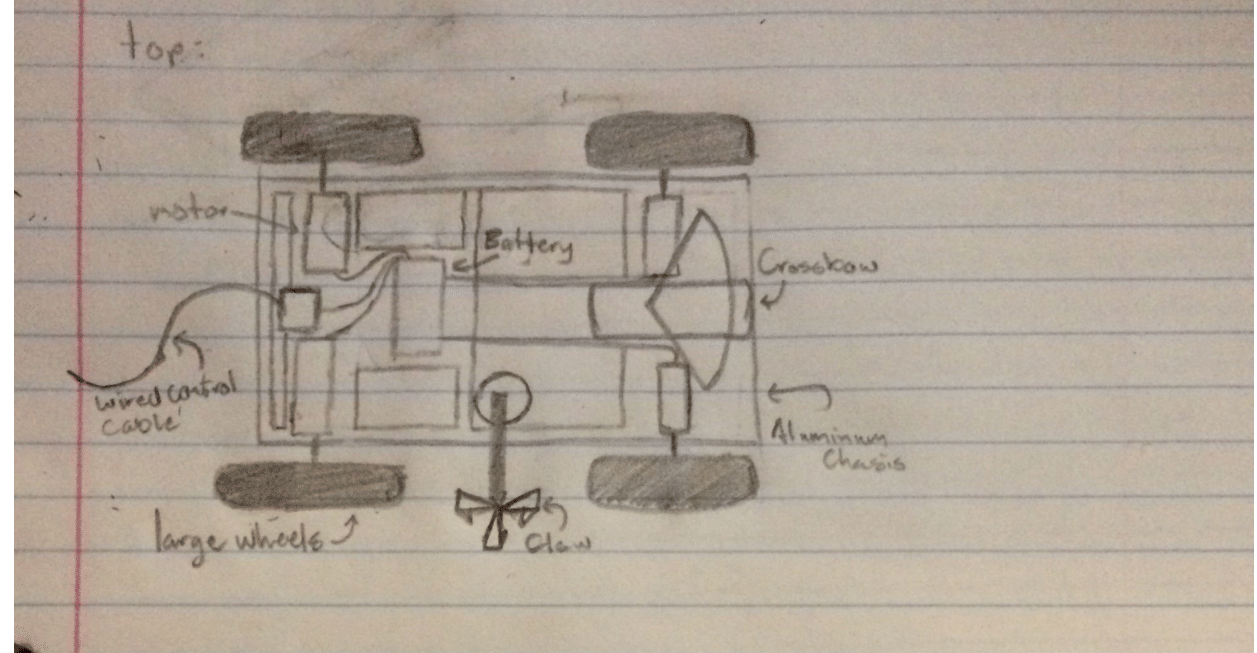 top:
motor
Battery
Crossbow
wired control
cable
Aluminium
Chasis
large wheels
Claw